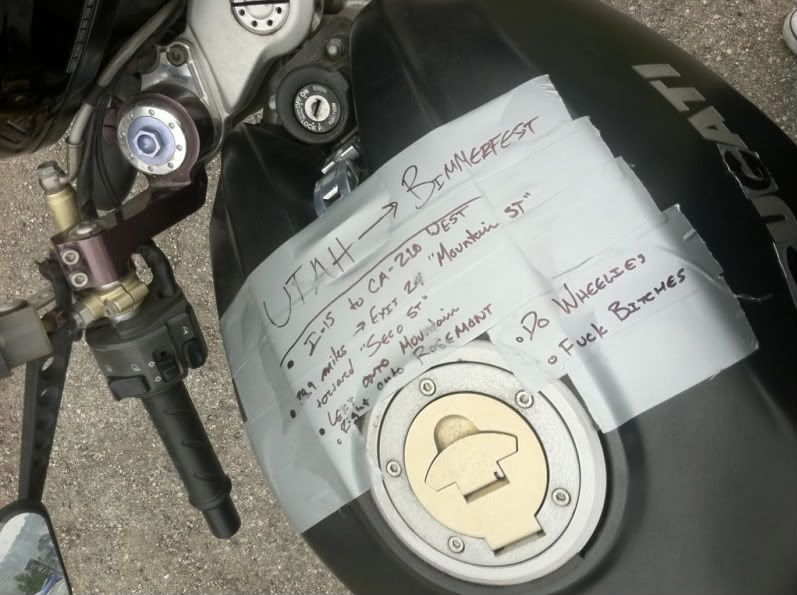 UTAH → BIMMERFEST
• I-15 to CA-210 WEST
• 29.9 miles → EXIT 24 "Mountain ST"
toward "SECO ST"
• LEFT ONTO Mountain
• Right onto ROSEMONT
• DO WHEELIES
• FUCK BITCHES
DUCATI
ON
OFF
LOCK